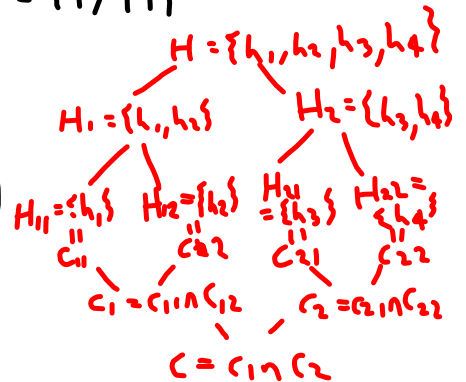 H = {h1, h2, h3, h4}
H1 = {h1, h2} H2 = {h3, h4}
H11 = {h1} H12 = {h2} H21 = {h3} H22 = {h4}
= C11 = C22 = C21 = C22
C1 = C11 ∩ C12 C2 = C21 ∩ C22
C = C1 ∩ C2